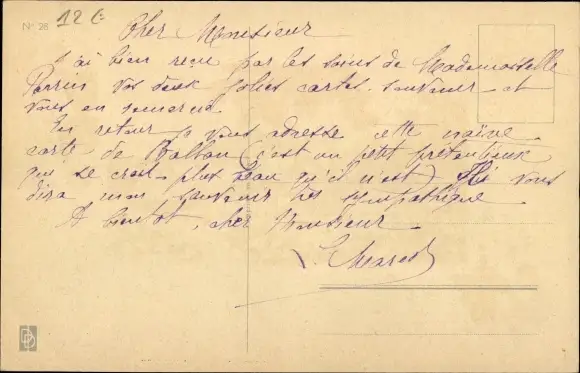 N° 28
12 €
Cher Monsieur
J'ai bien reçu par les soins de Mademoiselle
Perrin vos deux jolies cartes souvenir et
vous en remercie
En retour je vous adresse cette naïve
carte de (c'est un petit prétentieux
qui se croit plus beau qu'il n'est) Elle vous
dira mon souvenir très sympathique
A bientôt, cher Monsieur